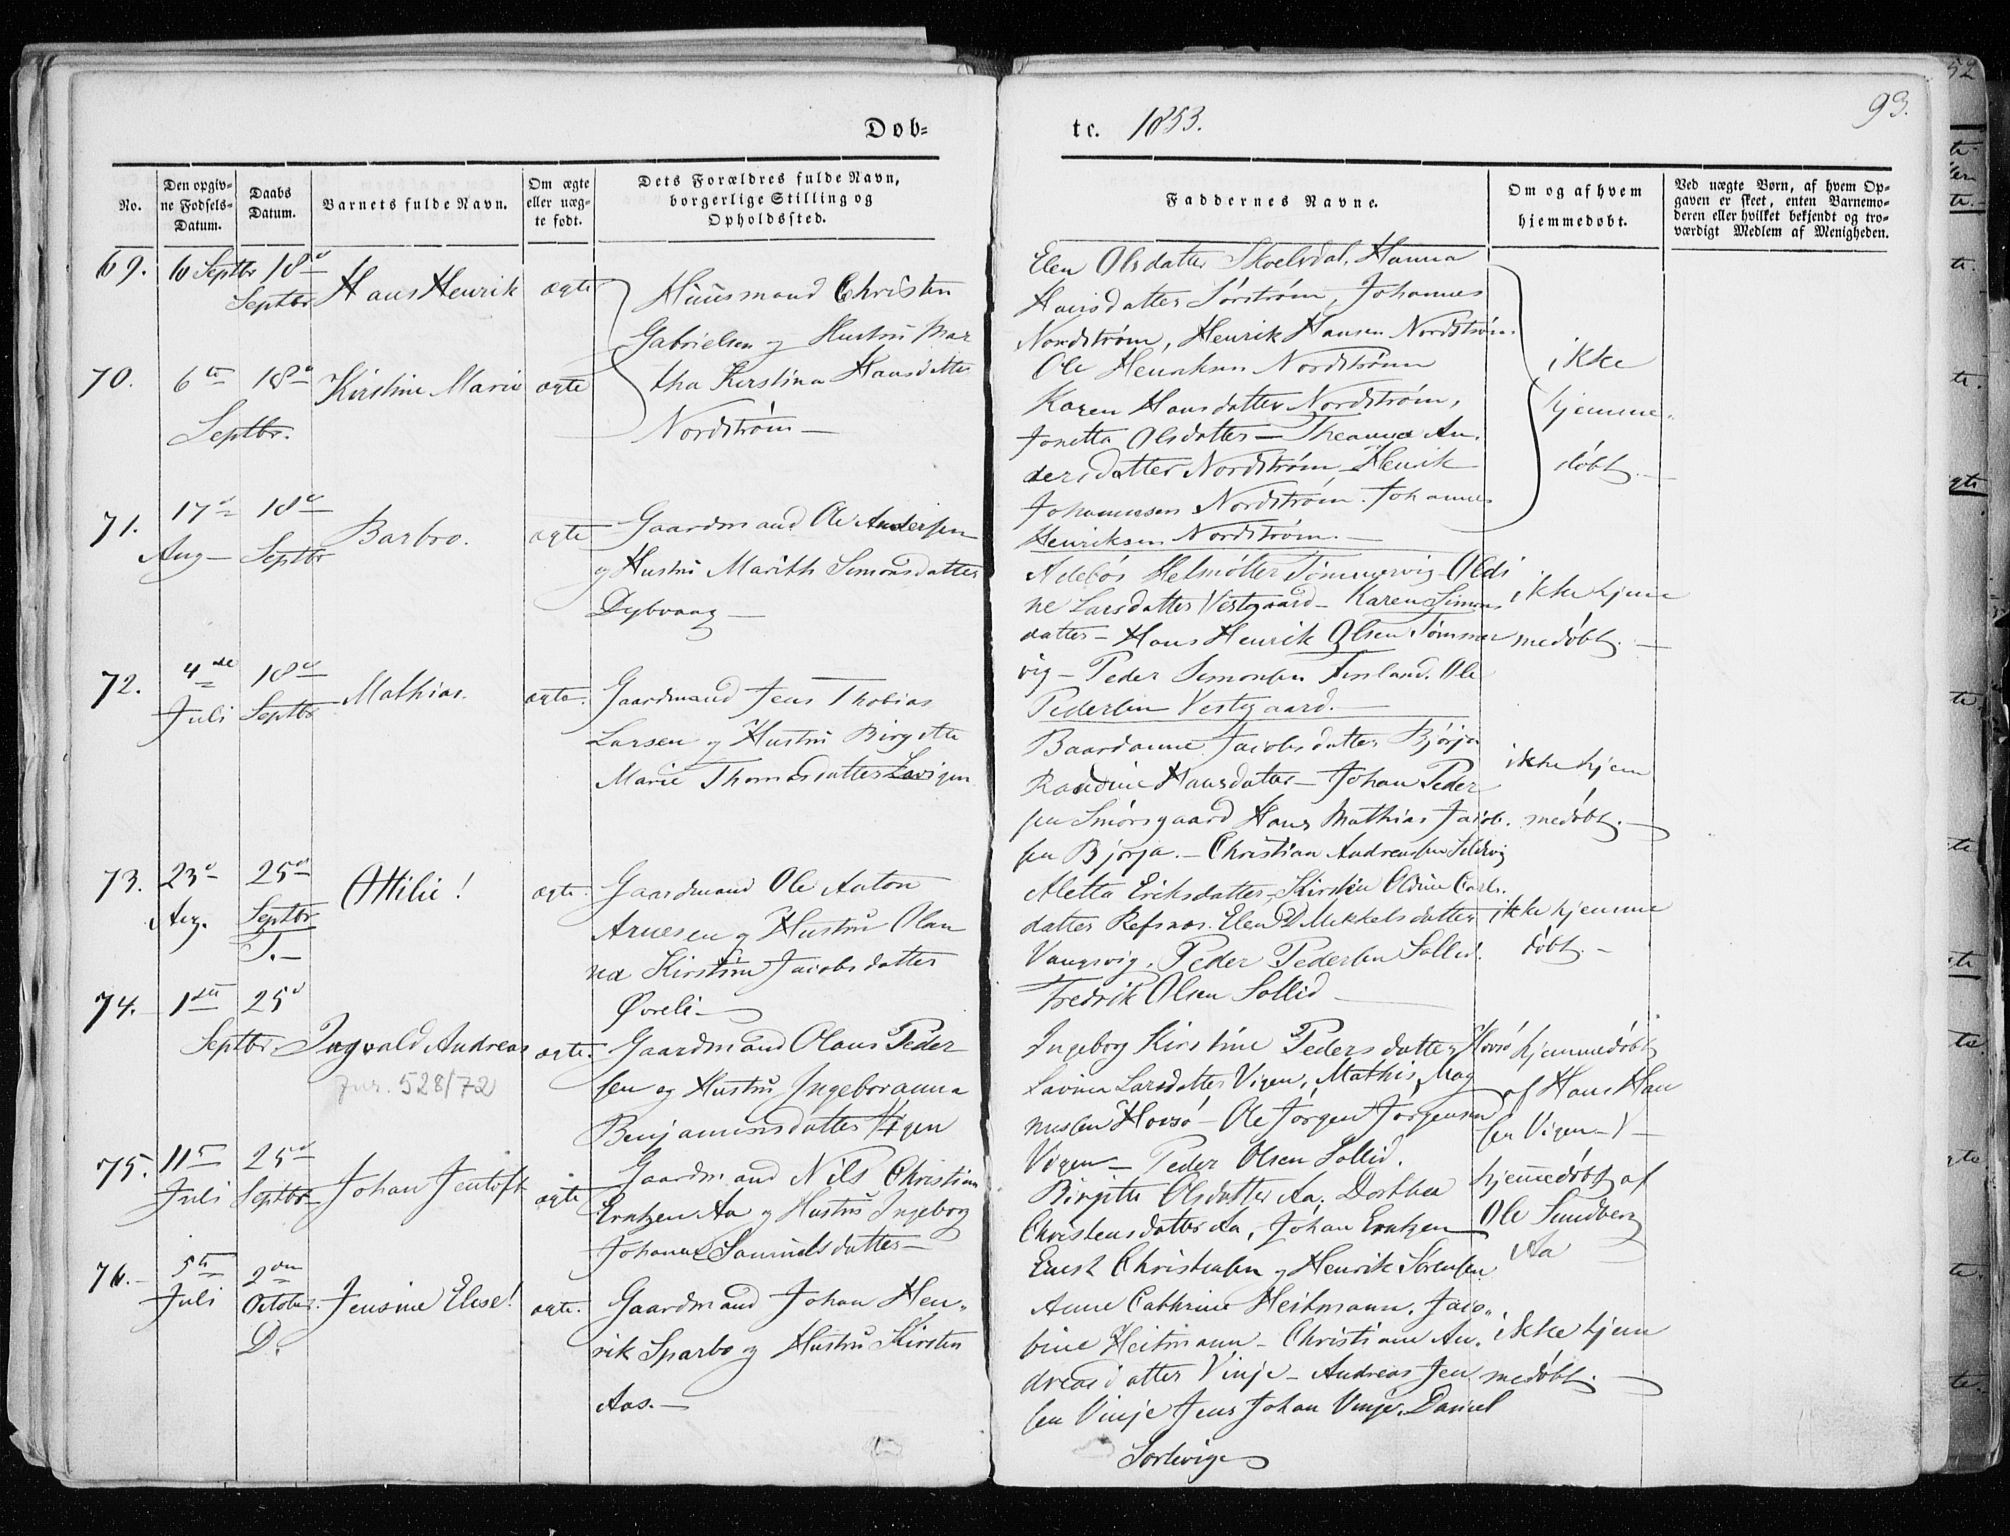 93.
52
Døb-
te. 1853.
No.
Den opgiv-
ne Fødsels-
Datum.
Daabs
Datum.
Barnets fulde Navn.
Om ægte
eller uæg-
te født.
Dets Forældres fulde Navn,
borgerlige Stilling og
Opholdssted.
Faddernes Navne.
Om og af hvem
hjemmedøbt.
Ved uægte Børn, af hvem Op-
gaven er skeet, enten Barnemo-
deren eller hvilket bekjendt og tro-
værdigt Medlem af Menigheden.
69. 6 Septbr 18de
Septbr Hans Henrik ægte
Huusmand Christen
Gabrielsen og Hustru Mar
tha Kerstina Hansdatter
Nordstrøm —
Elen Olsdatter Hanna
Hansdatter Sørstrøm, Johannes
Nordstrøm, Henrik Hansen Nordstrøm
Ole Henriksen Nordstrøm
70. 6te 18de Kirstine Marie ægte
Septbr.
Karen Hansdatter Nordstrøm,
Jonetta Olsdatter — Theanna An-
dersdatter Nordstrøm, Henrik
Johannesen Nordstrøm. Johannes
Henriksen Nordstrøm. —
ikke
hjemme-
døbt. —
71. 17de 18de
Aug — Septbr Barbro. ægte
Gaardmand Ole Andersen
og Hustru Marith Simonsdatter
Dybvaag —
Helmøtter Tømmervig — Oldi
ne Larsdatter Vestgaard — Karen Simons
datter — Hans Henrik Olsen Tømmer
vig — Peder Simonsen Finland. Ole
Pedersen Vestgaard. —
ikke hjem
medøbt. —
72. 4de 18de
Juli Septbr Mathias. ægte.
Gaardmand Jens Thobias
Larsen og Hustru Birgitte
Marie Thomasdatter Lavigen
Baardanne Jacobsdatter Bjørja
Randine Hansdatter — Johan Peder
sen Smørsgaard Hans Mathias Jacob-
sen Bjørja. — Christian Andreassen Selvig
ikke hjem
medøbt. —
73. 23de 25de
Aug. Septbr
T. —
Ottilie! ægte.
Gaardmand Ole Anton
Arnesen og Hustru Olan
na Kirstine Jacobsdatter
Øvreli —
Aletta Eriksdatter, Kirsten Oldine Carls-
datter Refsnes. Elen Mekkelsdatter
Vangsvig. Peder Pedersen Sollid.
Fredrik Olsen Sollid —
ikke hjemme
døbt. —
74. 1ste 25de
Septbr. Ingvald Andreas ægte.
jnr. 528/72
Gaardmand Olaus Peder
sen og Hustru Ingeboranna
Benjaminsdatter Vigen
Ingeborg Kirstine Pedersdatter Hovsø
Lavina Larsdatter Vigen, Mathis Mag
nussen Hovsø — Ole Jørgen Jørgensen
Vigen — Peder Olsen Sollid.
hjemmedøbt
af Hans Han
sen Vigen —
75. 11te 25de
Juli Septbr Johan Jentoft ægte
Gaardmand Nils Christian
Erntzen Aa og Hustru Ingeborg
Johanna Samuelsdatter —
Birgitte Olsdatter Aa, Dorthea
Christensdatter Aa, Johan Erntzen
Ernst Christensen og Henrik Sørensen
hjemmedøbt af
Ole Sundberg
Aa
76. — 5te 2den
Juli October.
D.
Jensine Elese! ægte.
Gaardmand Johan Hen-
rik Sparbo og Hustru Kirsten
Aas. —
Anne Cathrine Heitmann. Jaco-
bine Heitmann — Christiane An-
dreasdatter Vinje — Andreas Jen
sen Vinje Jens Johan Vinje. Daniel
Sørlivig
ikke hjem
medøbt. —